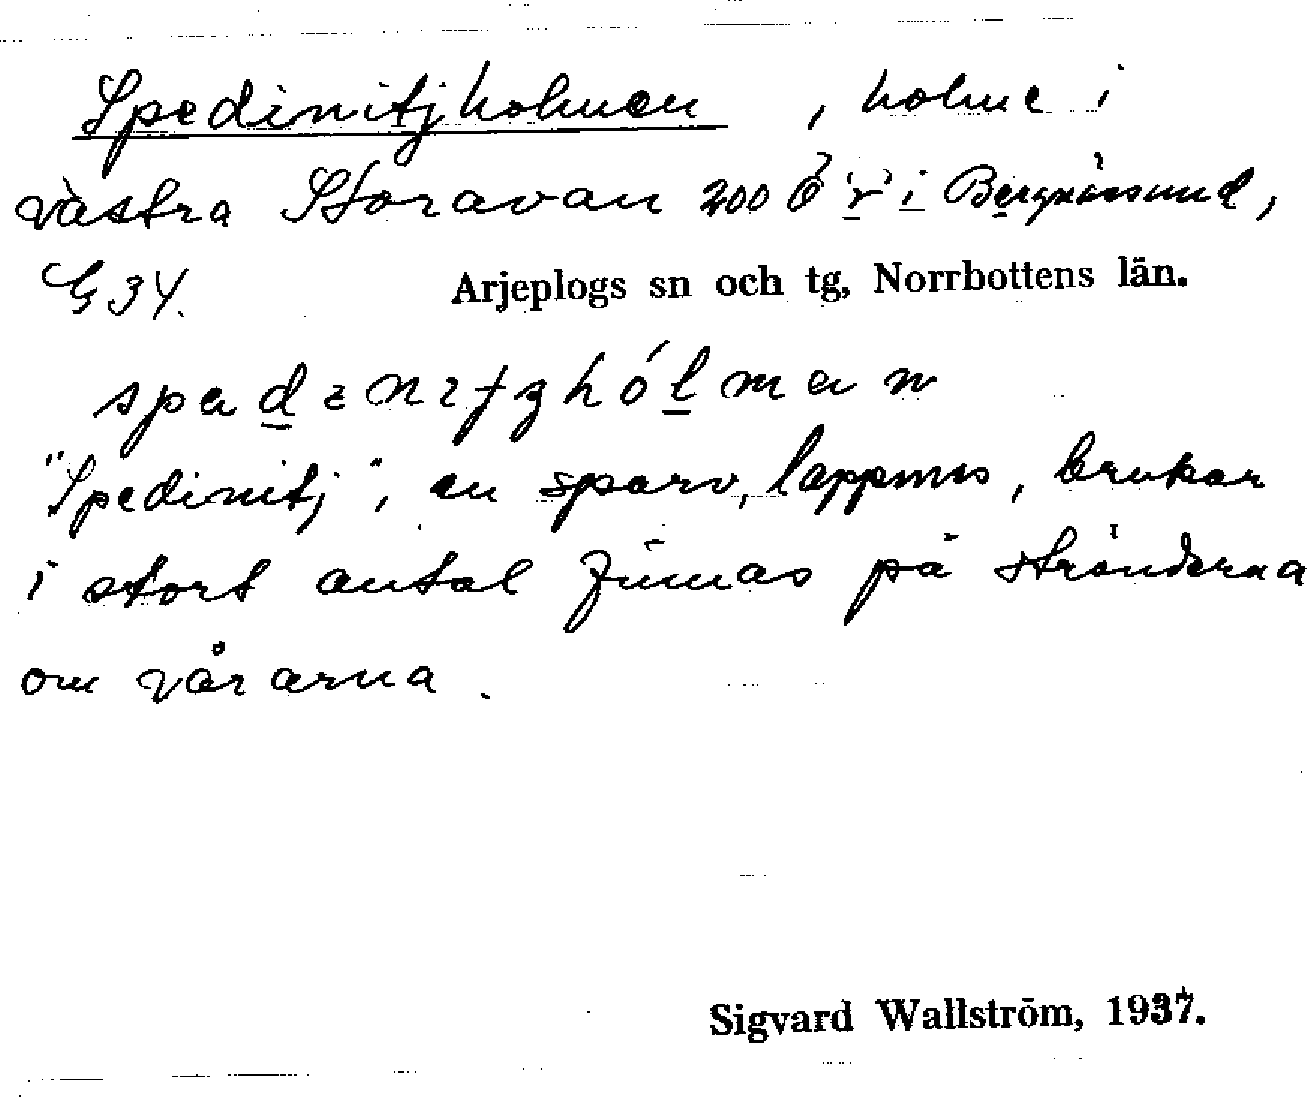 Spedinitjholmen, holme i
västra Storavan 200 Ö "r" i Bergnäsund,
G 34. Arjeplogs sn och tg, Norrbottens län.
"Spedinitj", en sparv, lappmes, brukar
i stort antal finnas på stränderna
om vårarna.
Sigvard Wallström, 1937.